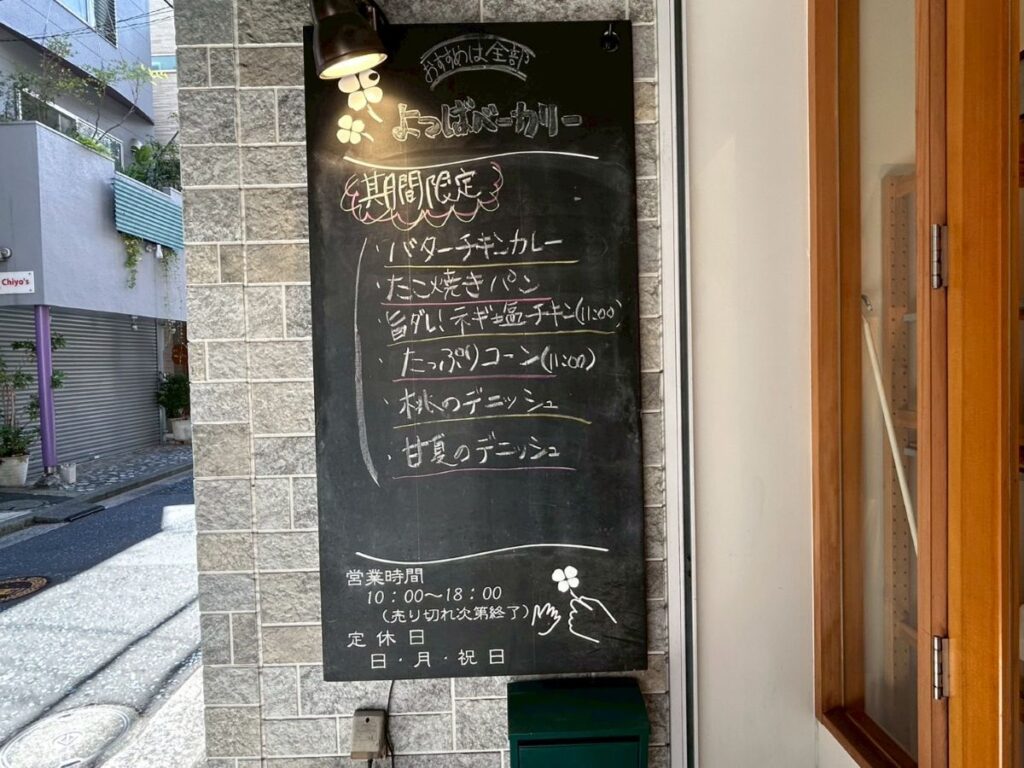 Chiyo's
おすすめは全部
よつばベーカリー
期間限定
・バターチキンカレー
・たこ焼きパン
・旨ダレ！ネギ塩チキン(11:00)
・たっぷりコーン(11:00)
・桃のデニッシュ
・甘夏のデニッシュ
営業時間
10：00～18：00
(売り切れ次第終了)
定休日
日・月・祝日